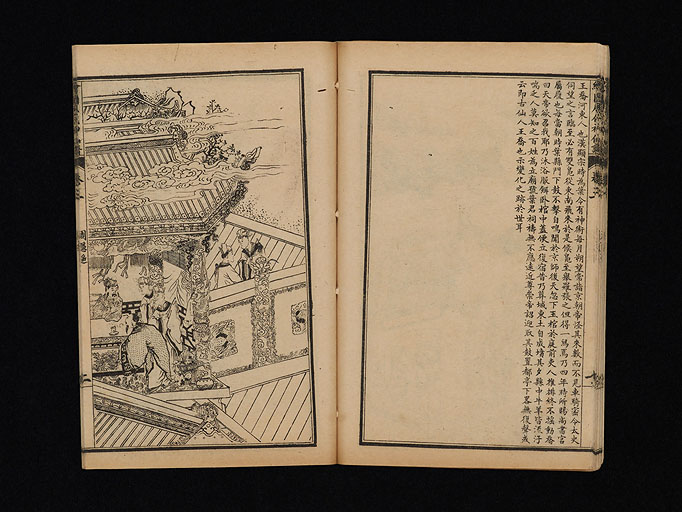 王喬河東人也漢顯宗時為葉令有神術每月朔望常詣京朝帝怪其來數而不見車騎密令太史
伺望之言臨至必有雙鳧從東南飛來於是候鳧至舉羅張之但得一舄焉乃四年時所賜尚書官
屬履也每當朝時葉縣門下鼓不擊自鳴聞於京師後天忽下玉棺於庭前吏人推排終不搖動喬
曰天帝欲召我耶乃沐浴服餙臥棺中蓋便立復宿昔乃葬城東土自成墳其夕縣中牛羊皆流汗
喘乏人莫知之百姓為立廟號葉君祠禱無不應遠近尊崇帝詔迎取其鼓置都亭下畧無復聲或
云即古仙人王喬也示變化之跡於世耳